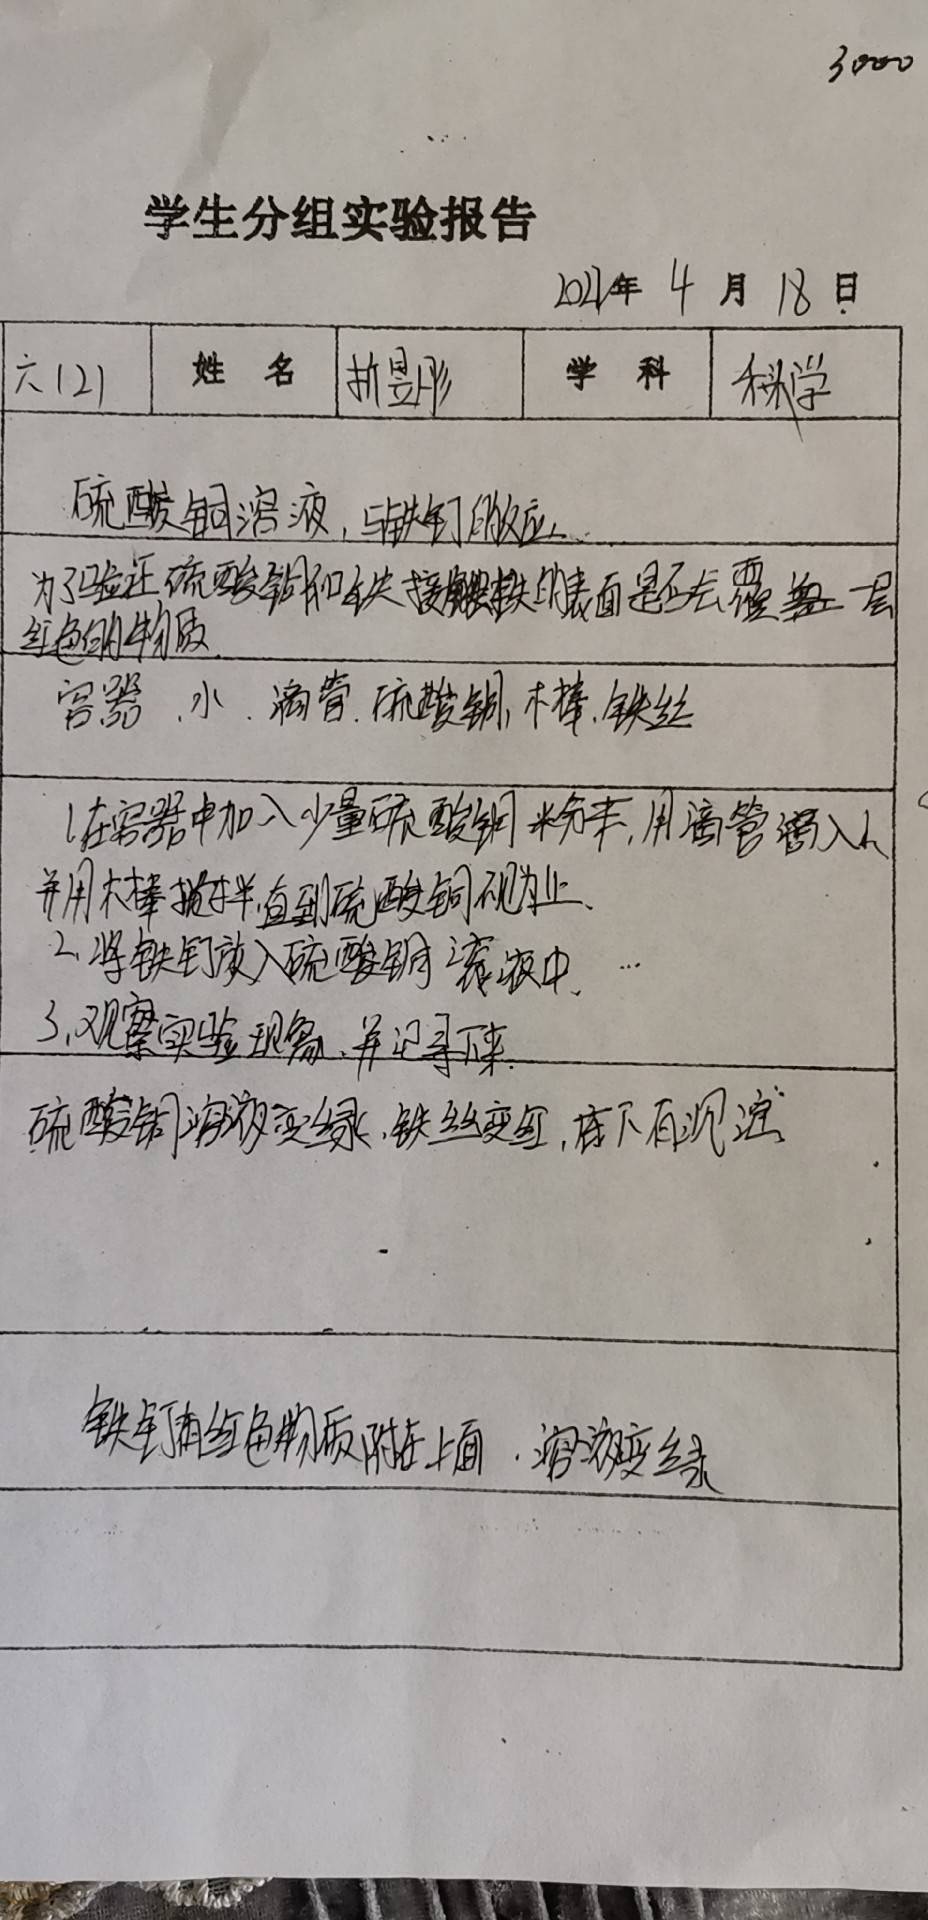 3000
学生分组实验报告
年 4 月 18 日
六(2) 姓 名 折昱彤 学 科 科学
硫酸铜溶液,与铁钉的反应.
为了验证硫酸铜和铁接触铁的表面是否会覆盖一层
红色的物质.
容器、水、滴管、硫酸铜、木棒、铁丝
1.在容器中加入少量硫酸铜粉末,用滴管滴入水
并用木棒搅拌,直到硫酸铜 为止、
2、将铁钉放入硫酸铜溶液中、…
3、观察实验现象、并记录下来.
硫酸铜溶液变绿、铁丝变红,底下有沉淀
铁钉有红色物质附在上面、溶液变绿